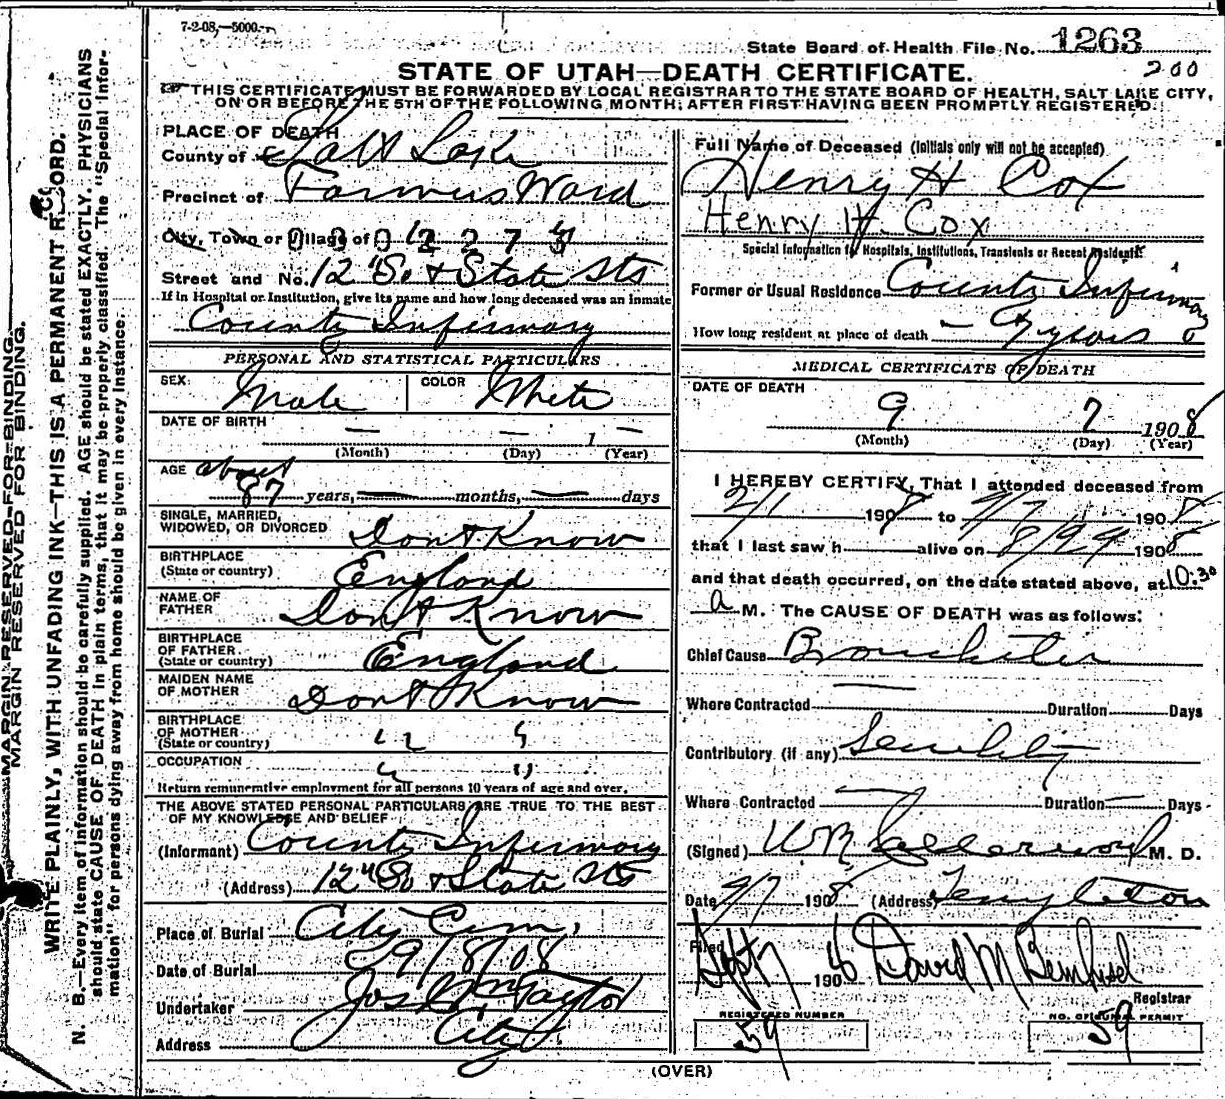 7-2-08,—5000.
State Board of Health File No. 1263
200
STATE OF UTAH—DEATH CERTIFICATE.
THIS CERTIFICATE MUST BE FORWARDED BY LOCAL REGISTRAR TO THE STATE BOARD OF HEALTH, SALT LAKE CITY,
ON OR BEFORE THE 5TH OF THE FOLLOWING MONTH, AFTER FIRST HAVING BEEN PROMPTLY REGISTERED.
MARGIN RESERVED FOR BINDING.
MARGIN RESERVED FOR BINDING.
WRITE PLAINLY, WITH UNFADING INK—THIS IS A PERMANENT RECORD.
N. B.—Every item of information should be carefully supplied. AGE should be stated EXACTLY. PHYSICIANS
should state CAUSE OF DEATH in plain terms, that it may be properly classified. The "Special Infor-
mation" for persons dying away from home should be given in every instance.
PLACE OF DEATH
County of Salt Lake
Precinct of Farmers Ward
City, Town or Village of
Street and No. 12" So & State Sts
If in Hospital or Institution, give its name and how long deceased was an inmate
County Infirmary
PERSONAL AND STATISTICAL PARTICULARS
SEX: Male COLOR White
DATE OF BIRTH — — 1 —
(Month) (Day) (Year)
AGE about
87 years, — months, — days
SINGLE, MARRIED,
WIDOWED, OR DIVORCED Dont Know
BIRTHPLACE
(State or country) England
NAME OF
FATHER Dont Know
BIRTHPLACE
OF FATHER
(State or country) England
MAIDEN NAME
OF MOTHER Dont Know
BIRTHPLACE
OF MOTHER
(State or country) " "
OCCUPATION " "
Return remunerative employment for all persons 10 years of age and over.
THE ABOVE STATED PERSONAL PARTICULARS ARE TRUE TO THE BEST
OF MY KNOWLEDGE AND BELIEF
(Informant) County Infirmary
(Address) 12" So & State Sts
Place of Burial City Cem,
Date of Burial 9/8/08
Undertaker Jos Wm Taylor
Address City
Full Name of Deceased (Initials only will not be accepted)
Henry H Cox
Henry H. Cox
Special Information for Hospitals, Institutions, Transients or Recent Residents:
Former or Usual Residence County Infirmary
How long resident at place of death — 9 years
MEDICAL CERTIFICATE OF DEATH
DATE OF DEATH
9 7 1908
(Month) (Day) (Year)
I HEREBY CERTIFY, That I attended deceased from
2/1 1908 to 9/7 1908
that I last saw h alive on 8/29 1908
and that death occurred, on the date stated above, at 10:30
a M. The CAUSE OF DEATH was as follows:
Chief Cause Bronchitis
Where Contracted — Duration Days
Contributory (if any) Senility
Where Contracted — Duration — Days
(Signed) M. D.
Date 9/7 1908 (Address) Templeton
Filed Sept 7 190 David M
Registrar
REGISTERED NUMBER
59
NO. OF BURIAL PERMIT
59
(OVER)